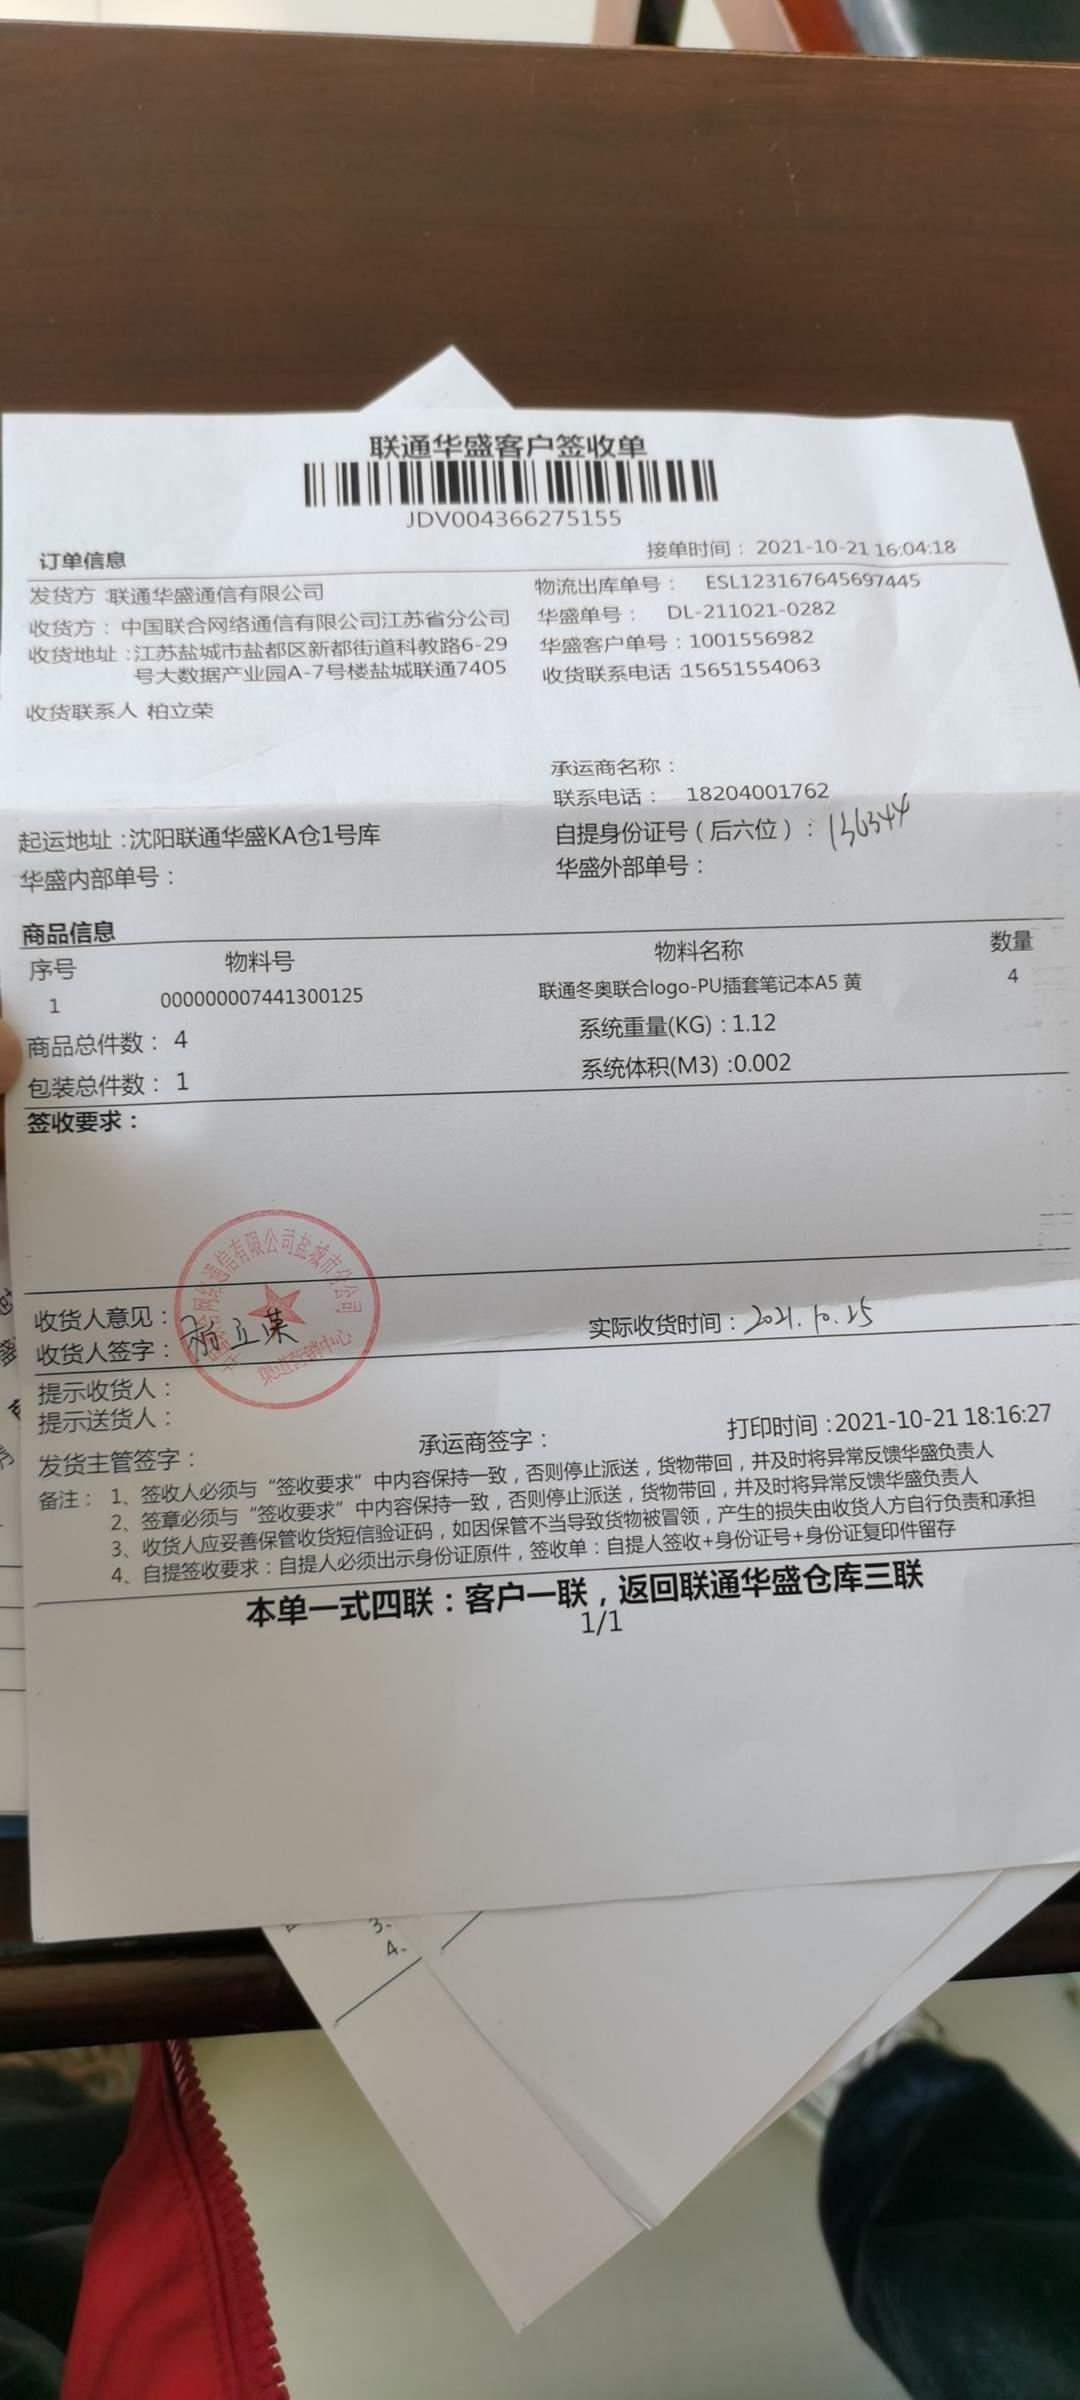 联通华盛客户签收单
JDV004366275155
订单信息
接单时间： 2021-10-21 16:04:18
发货方 :联通华盛通信有限公司
物流出库单号： ESL123167645697445
收货方： 中国联合网络通信有限公司江苏省分公司
华盛单号： DL-211021-0282
收货地址 :江苏盐城市盐都区新都街道科教路6-29
号大数据产业园A-7号楼盐城联通7405
华盛客户单号：1001556982
收货联系电话 :15651554063
收货联系人 柏立荣
承运商名称：
联系电话： 18204001762
起运地址 :沈阳联通华盛KA仓1号库
自提身份证号（后六位）：136344
华盛内部单号：
华盛外部单号：
商品信息
序号 物料号 物料名称 数量
1 000000007441300125 联通冬奥联合logo-PU插套笔记本A5 黄 4
商品总件数： 4 系统重量(KG) : 1.12
包装总件数： 1 系统体积(M3) :0.002
签收要求：
收货人意见：
收货人签字： 柏立荣
实际收货时间：2021.10.25
中国联合网络通信有限公司盐城市分公司
渠道营销中心
提示收货人：
提示送货人：
发货主管签字：
承运商签字：
打印时间 :2021-10-21 18:16:27
备注： 1、签收人必须与“签收要求”中内容保持一致，否则停止派送，货物带回，并及时将异常反馈华盛负责人
2、签章必须与“签收要求”中内容保持一致，否则停止派送，货物带回，并及时将异常反馈华盛负责人
3、收货人应妥善保管收货短信验证码，如因保管不当导致货物被冒领，产生的损失由收货人方自行负责和承担
4、自提签收要求：自提人必须出示身份证原件，签收单：自提人签收+身份证号+身份证复印件留存
本单一式四联：客户一联，返回联通华盛仓库三联
1/1
3、
4、